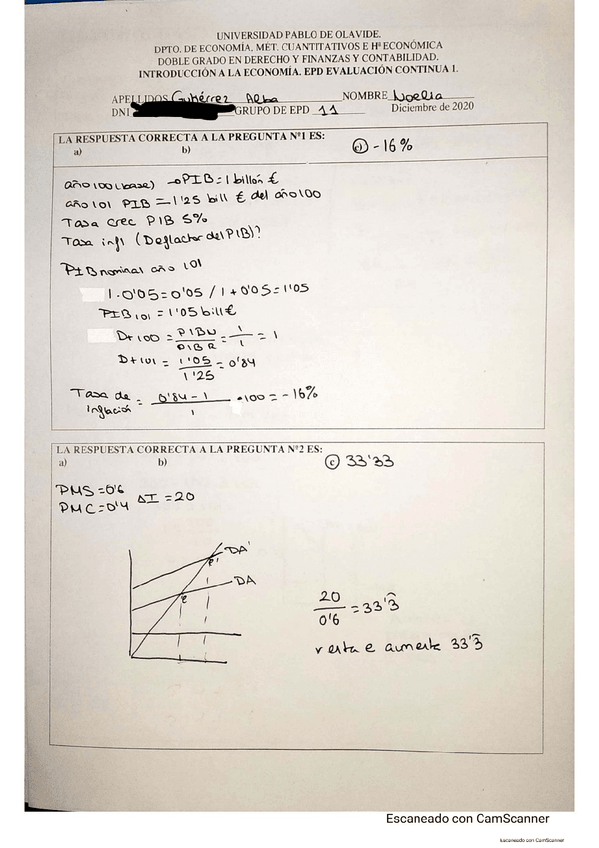 UNIVERSIDAD PABLO DE OLAVIDE.
DPTO. DE ECONOMÍA, MÉT. CUANTITATIVOS E Hª ECONÓMICA
DOBLE GRADO EN DERECHO Y FINANZAS Y CONTABILIDAD.
INTRODUCCIÓN A LA ECONOMÍA. EPD EVALUACIÓN CONTINUA 1.
APELLIDOS Gutiérrez Alba NOMBRE Noelia
DNI GRUPO DE EPD 11 Diciembre de 2020
LA RESPUESTA CORRECTA A LA PREGUNTA Nº1 ES:
a) b) c) -16%
año 100 (base) → PIB = 1 billón €
año 101 PIB = 1'25 bill € del año 100
Tasa crec PIB 5%
Tasa infl (Deflactor del PIB)?
PIB nominal año 101
1·0'05 = 0'05 / 1 + 0'05 = 1'05
PIB101 = 1'05 bill €
Dt 100 = PIBN/PIBR = 1/1 = 1
Dt 101 = 1'05/1'25 = 0'84
Tasa de inflación = 0'84 - 1/1 • 100 = -16%
LA RESPUESTA CORRECTA A LA PREGUNTA Nº2 ES:
a) b) c 33'33
PMS = 0'6
PMC = 0'4 ΔI = 20
DA'
e'
DA
e
20/0'6 = 33'3̂
renta e aumenta 33'3̂
Escaneado con CamScanner
Escaneado con CamScanner